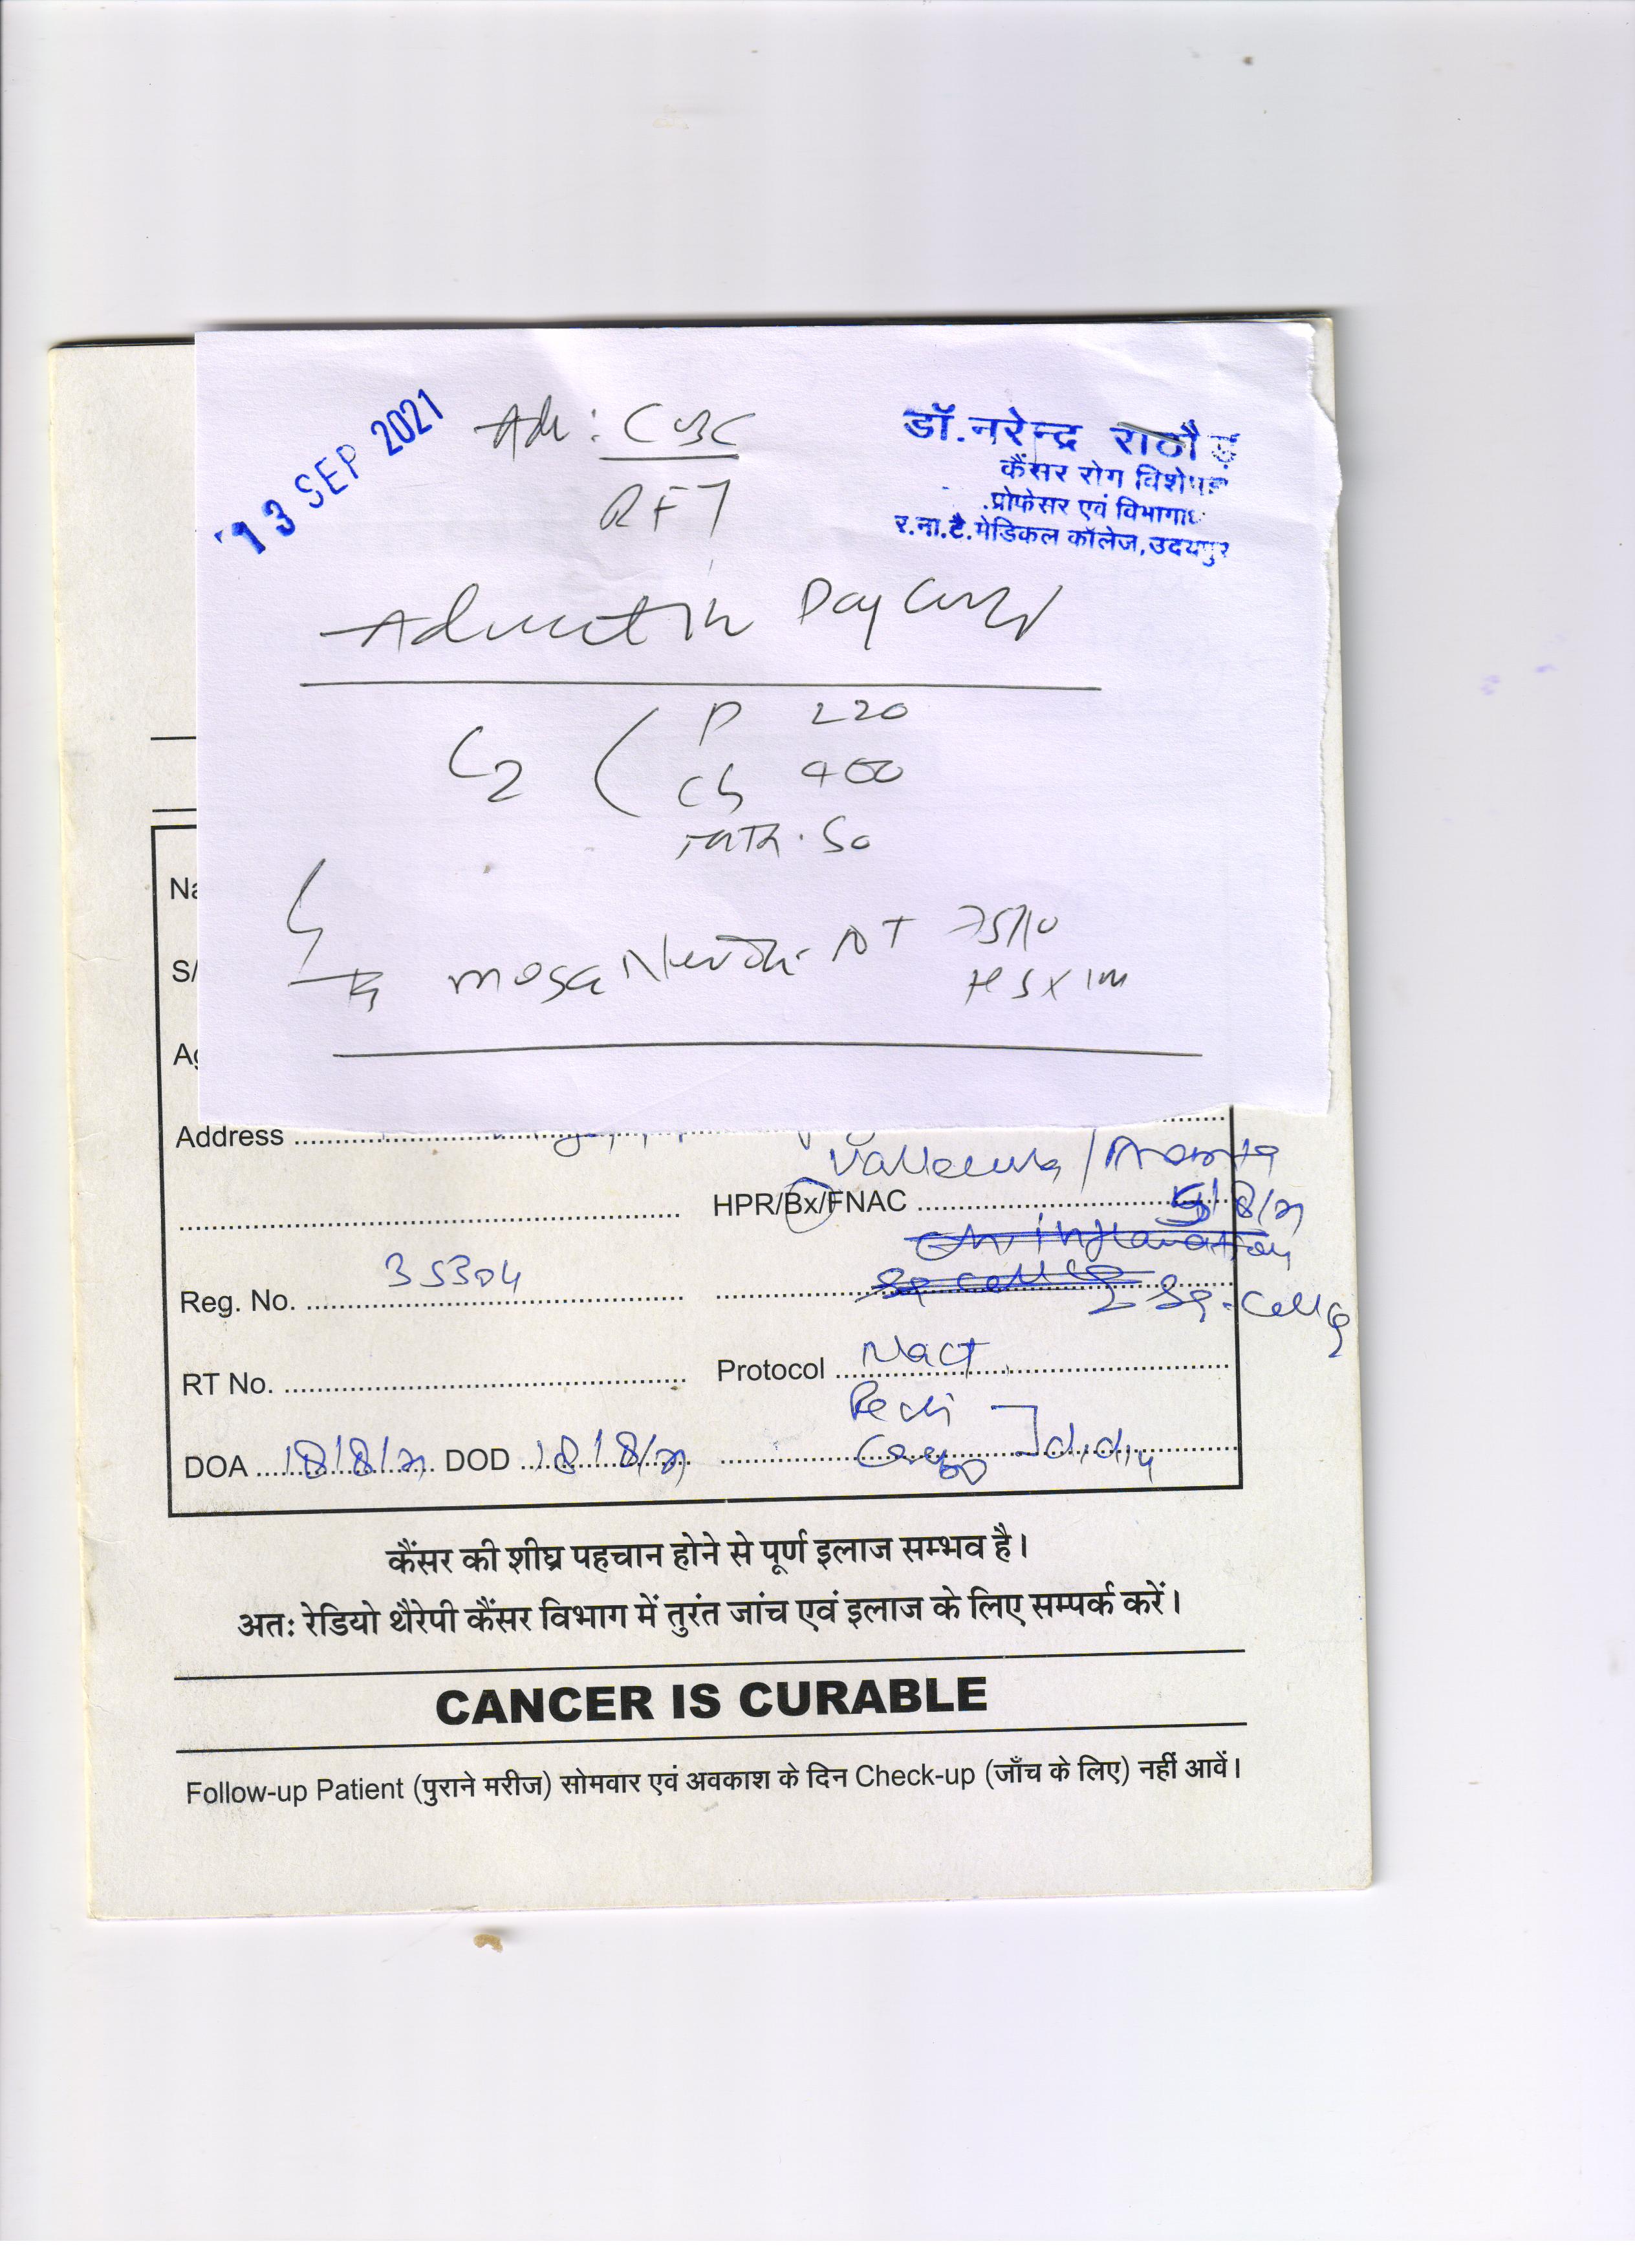 13 SEP 2021
Adv: CBC
RFT
डॉ.नरेन्द्र राठौड़
कैंसर रोग विशेषज्ञ
प्रोफेसर एवं विभागाध
र.ना.टै.मेडिकल कॉलेज,उदयपुर
Admit in Day Care
C2 ( P 220
Cb 400
75/10
HS x 1m
Na
S/
Ag
Address
Vallecula /
HPR/Bx/FNAC
5/8/21
Reg. No. 35304
Sq. Cell
RT No.
Protocol NACT
DOA 18/8/21 DOD 18/8/21
कैंसर की शीघ्र पहचान होने से पूर्ण इलाज सम्भव है।
अतः रेडियो थैरेपी कैंसर विभाग में तुरंत जांच एवं इलाज के लिए सम्पर्क करें।
CANCER IS CURABLE
Follow-up Patient (पुराने मरीज) सोमवार एवं अवकाश के दिन Check-up (जाँच के लिए) नहीं आवें।